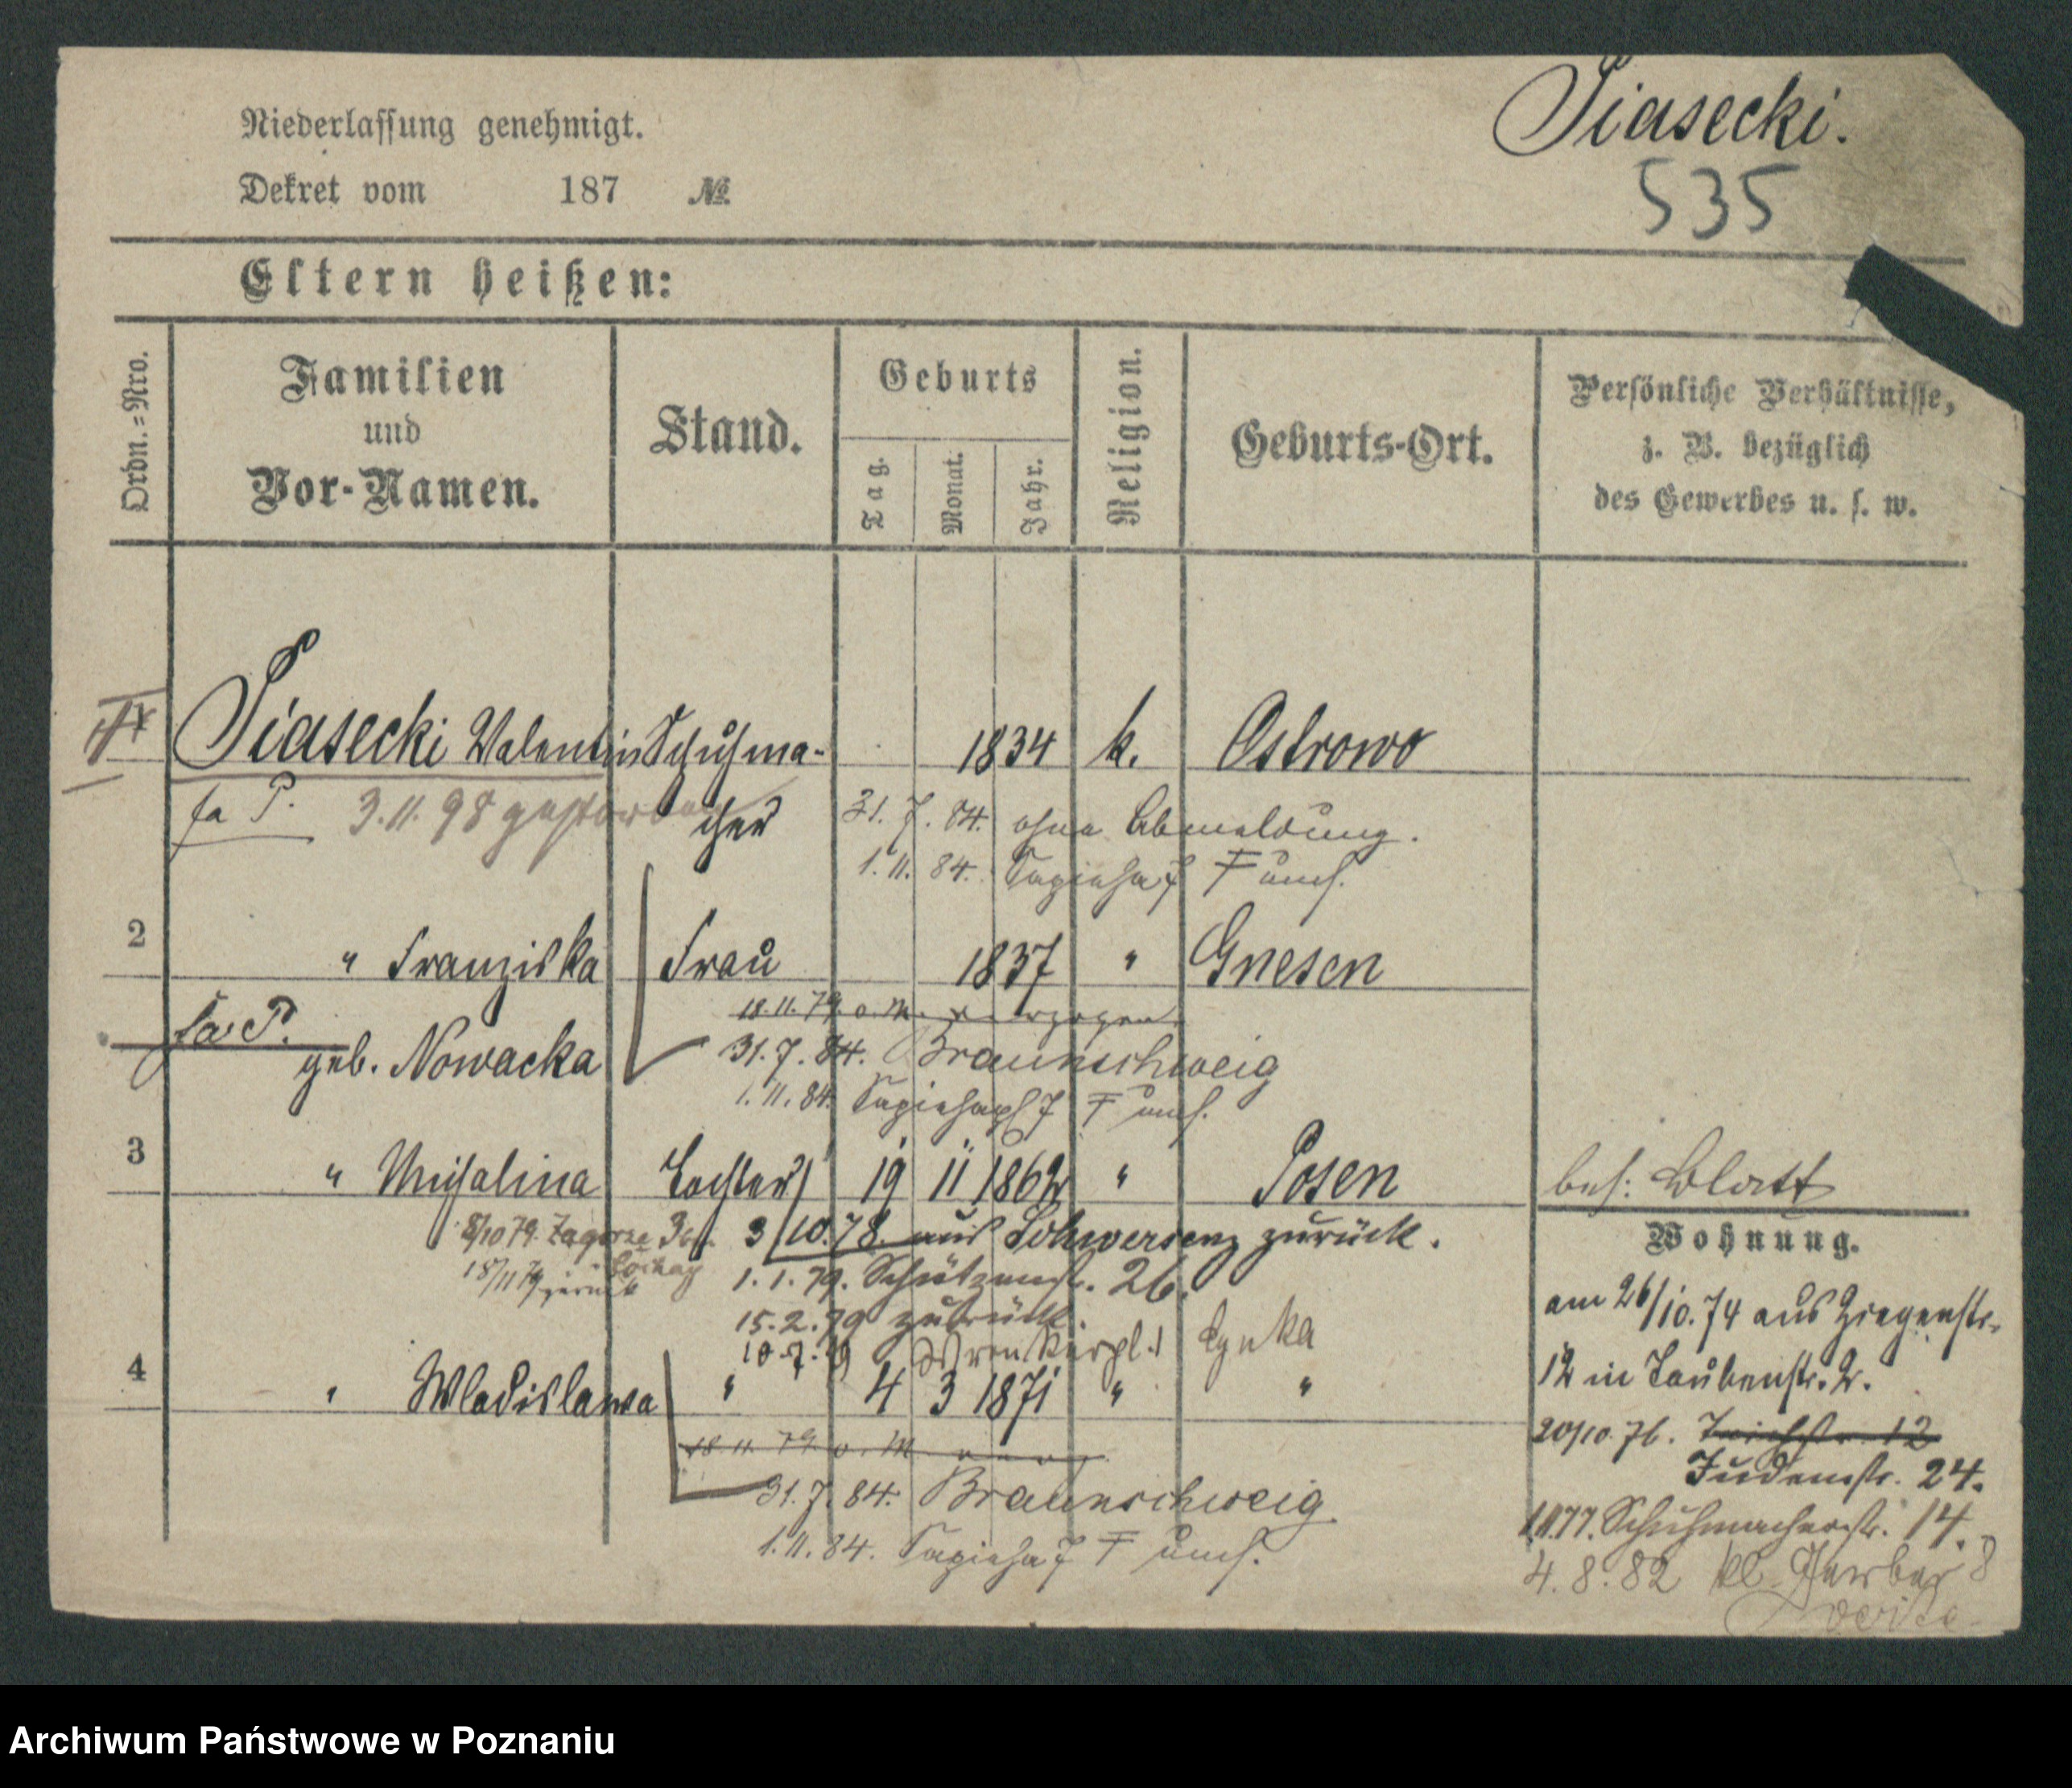 Piasecki.
535
Niederlassung genehmigt.
Dekret vom 187 №
Eltern heißen:
Ordn.=Nro.
Familien
und
Vor-Namen.
Stand.
Geburts
Tag.
Monat.
Jahr.
Religion.
Geburts-Ort.
Persönliche Verhältnisse,
z. B. bezüglich
des Gewerbes u. s. w.
Piasecki Valentin Schuhma- 1834 k. Ostrowo
fa P. 3.11.98 gestorben cher 31.7.84. ohne Abmeldung.
1.11.84. Sapieha 7 F umh.
2 " Franziska Frau 1837 " Gnesen
18.11.79. o. M. verzogen
fa P. geb. Nowacka 31.7.84. Braunschweig
1.11.84. Sapiehapl 7 F umh.
3 " Michalina Tochter 19 11 1862 " Posen
bes: Blatt
8/10 79. Zagorze 3/10.78. aus Schwersenz zurück.
18/11 79 zurück 1.1.79. Schützenstr. 26.
15.2.79 zurück.
10.7.79 Wronkerpl. 1
4 " Wladislawa " 4 3 1871 " "
18.11.79. o. M.
31.7.84. Braunschweig
1.11.84. Sapieha 7 F umh.
Wohnung.
am 26/10.74 aus Ziegenstr.
12 in Taubenstr. 2.
20/10.76. Teichstr. 12
Judenstr. 24.
1.11.77. Schuhmacherstr. 14.
4.8.82 kl. Gerber 8
Archiwum Państwowe w Poznaniu